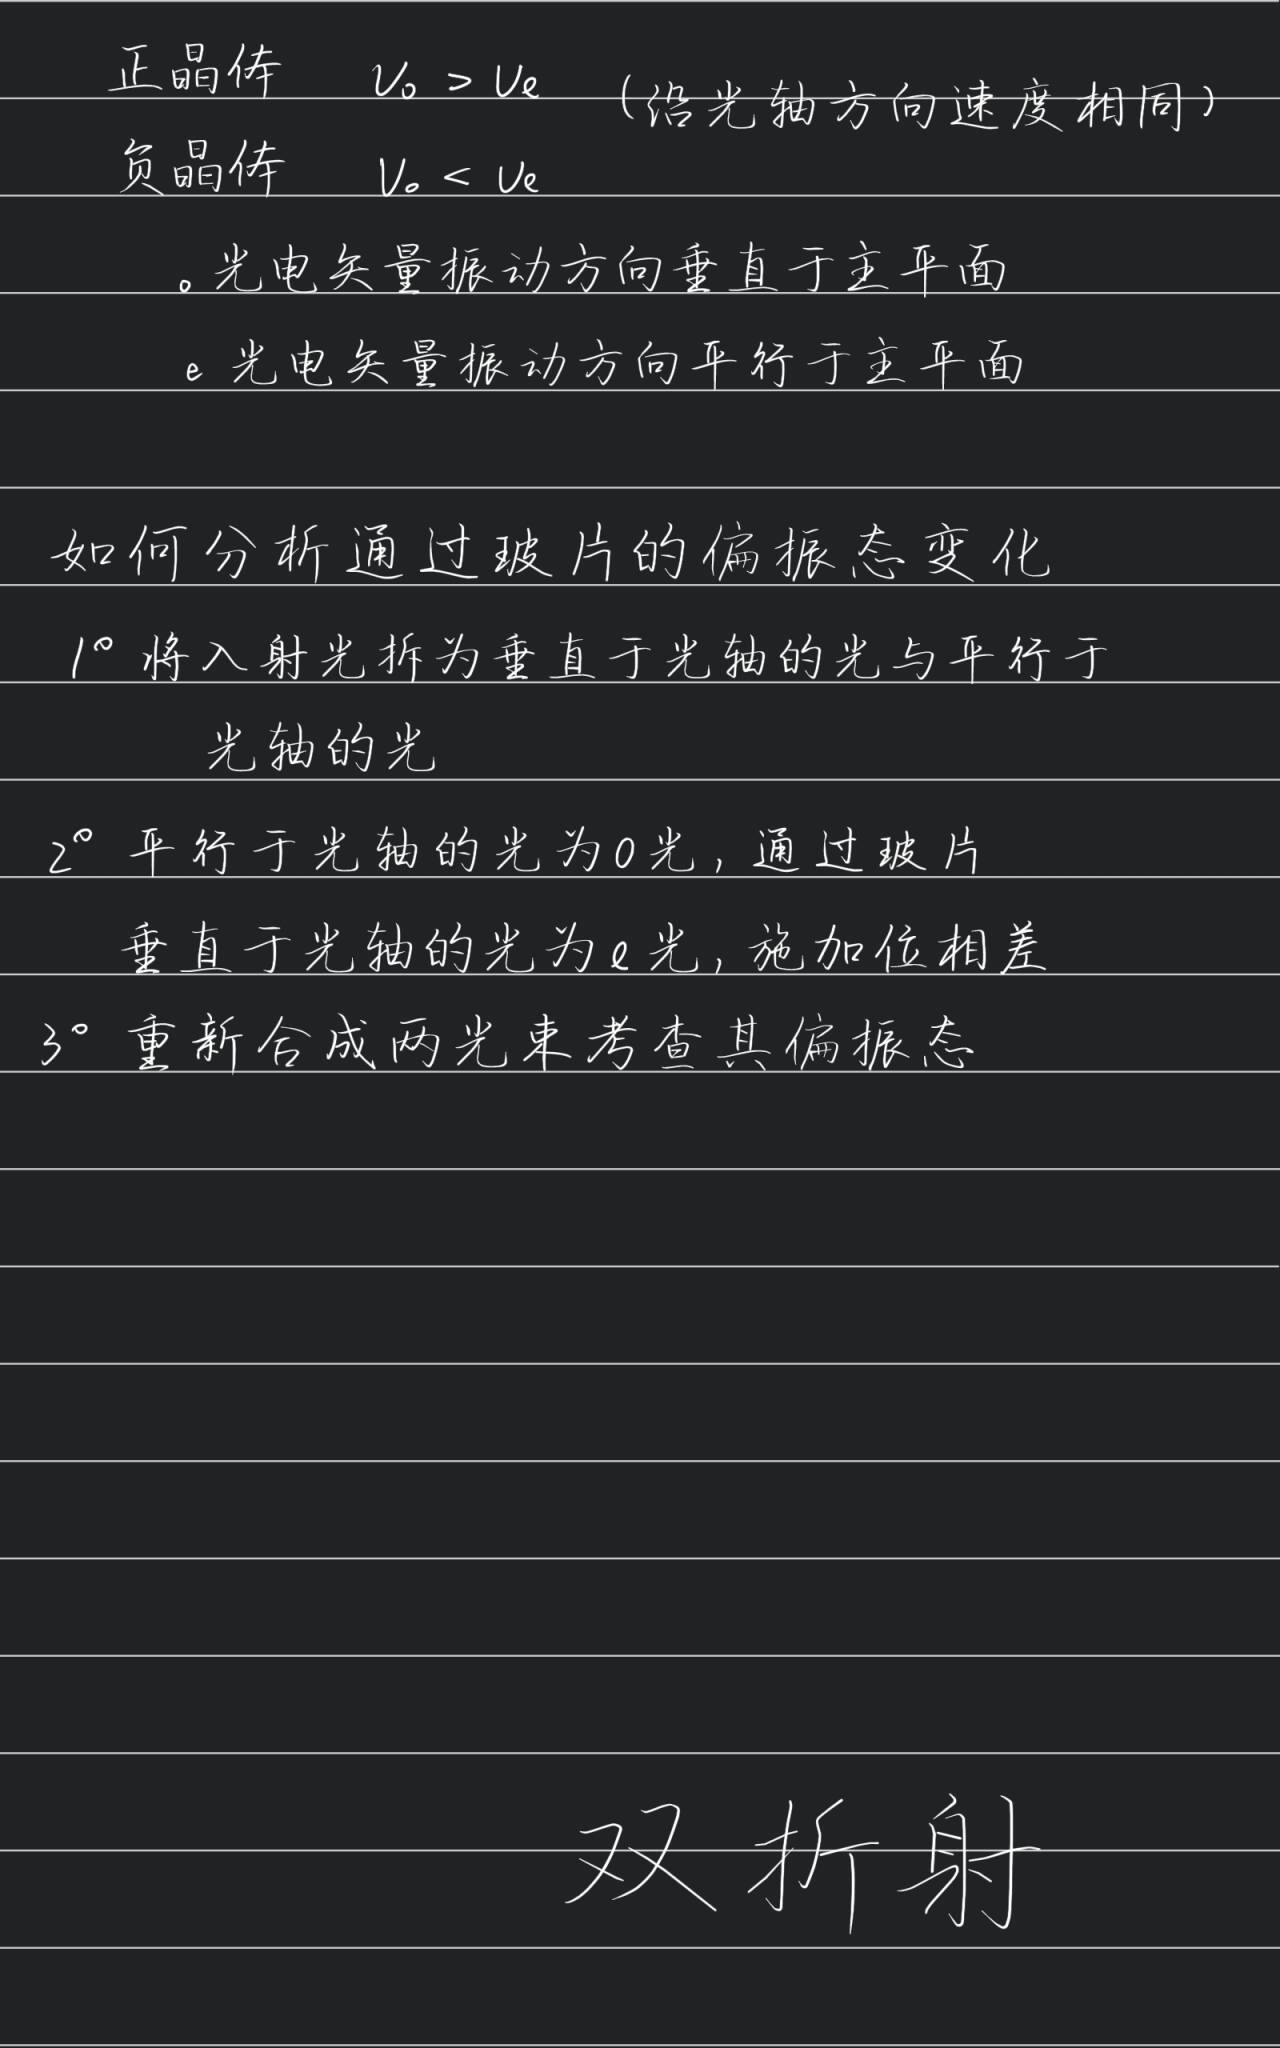 正晶体 v₀ > ve (沿光轴方向速度相同)
负晶体 v₀ < ve
o光电矢量振动方向垂直于主平面
e光电矢量振动方向平行于主平面
如何分析通过玻片的偏振态变化
1° 将入射光拆为垂直于光轴的光与平行于
光轴的光
2° 平行于光轴的光为O光, 通过玻片
垂直于光轴的光为e光, 施加位相差
3° 重新合成两光束考查其偏振态
双折射